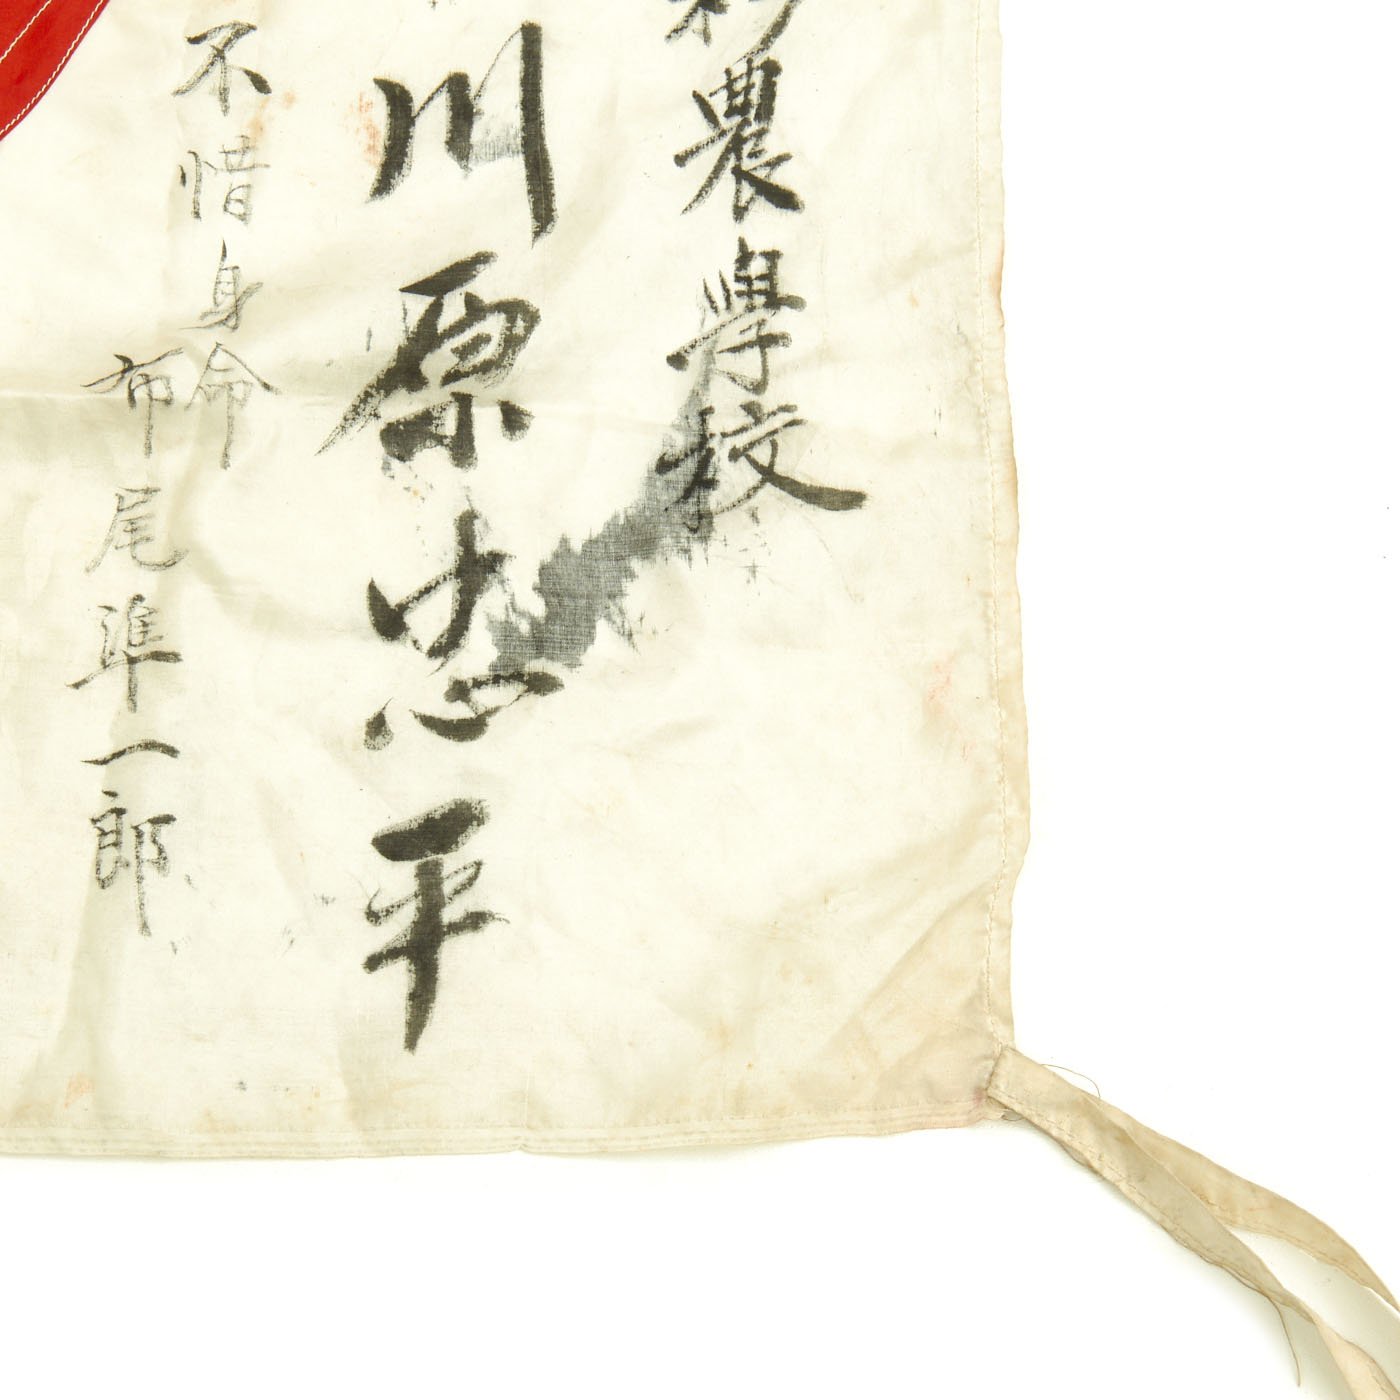 農學校
川原忠平
不惜身命
布尾準一郎